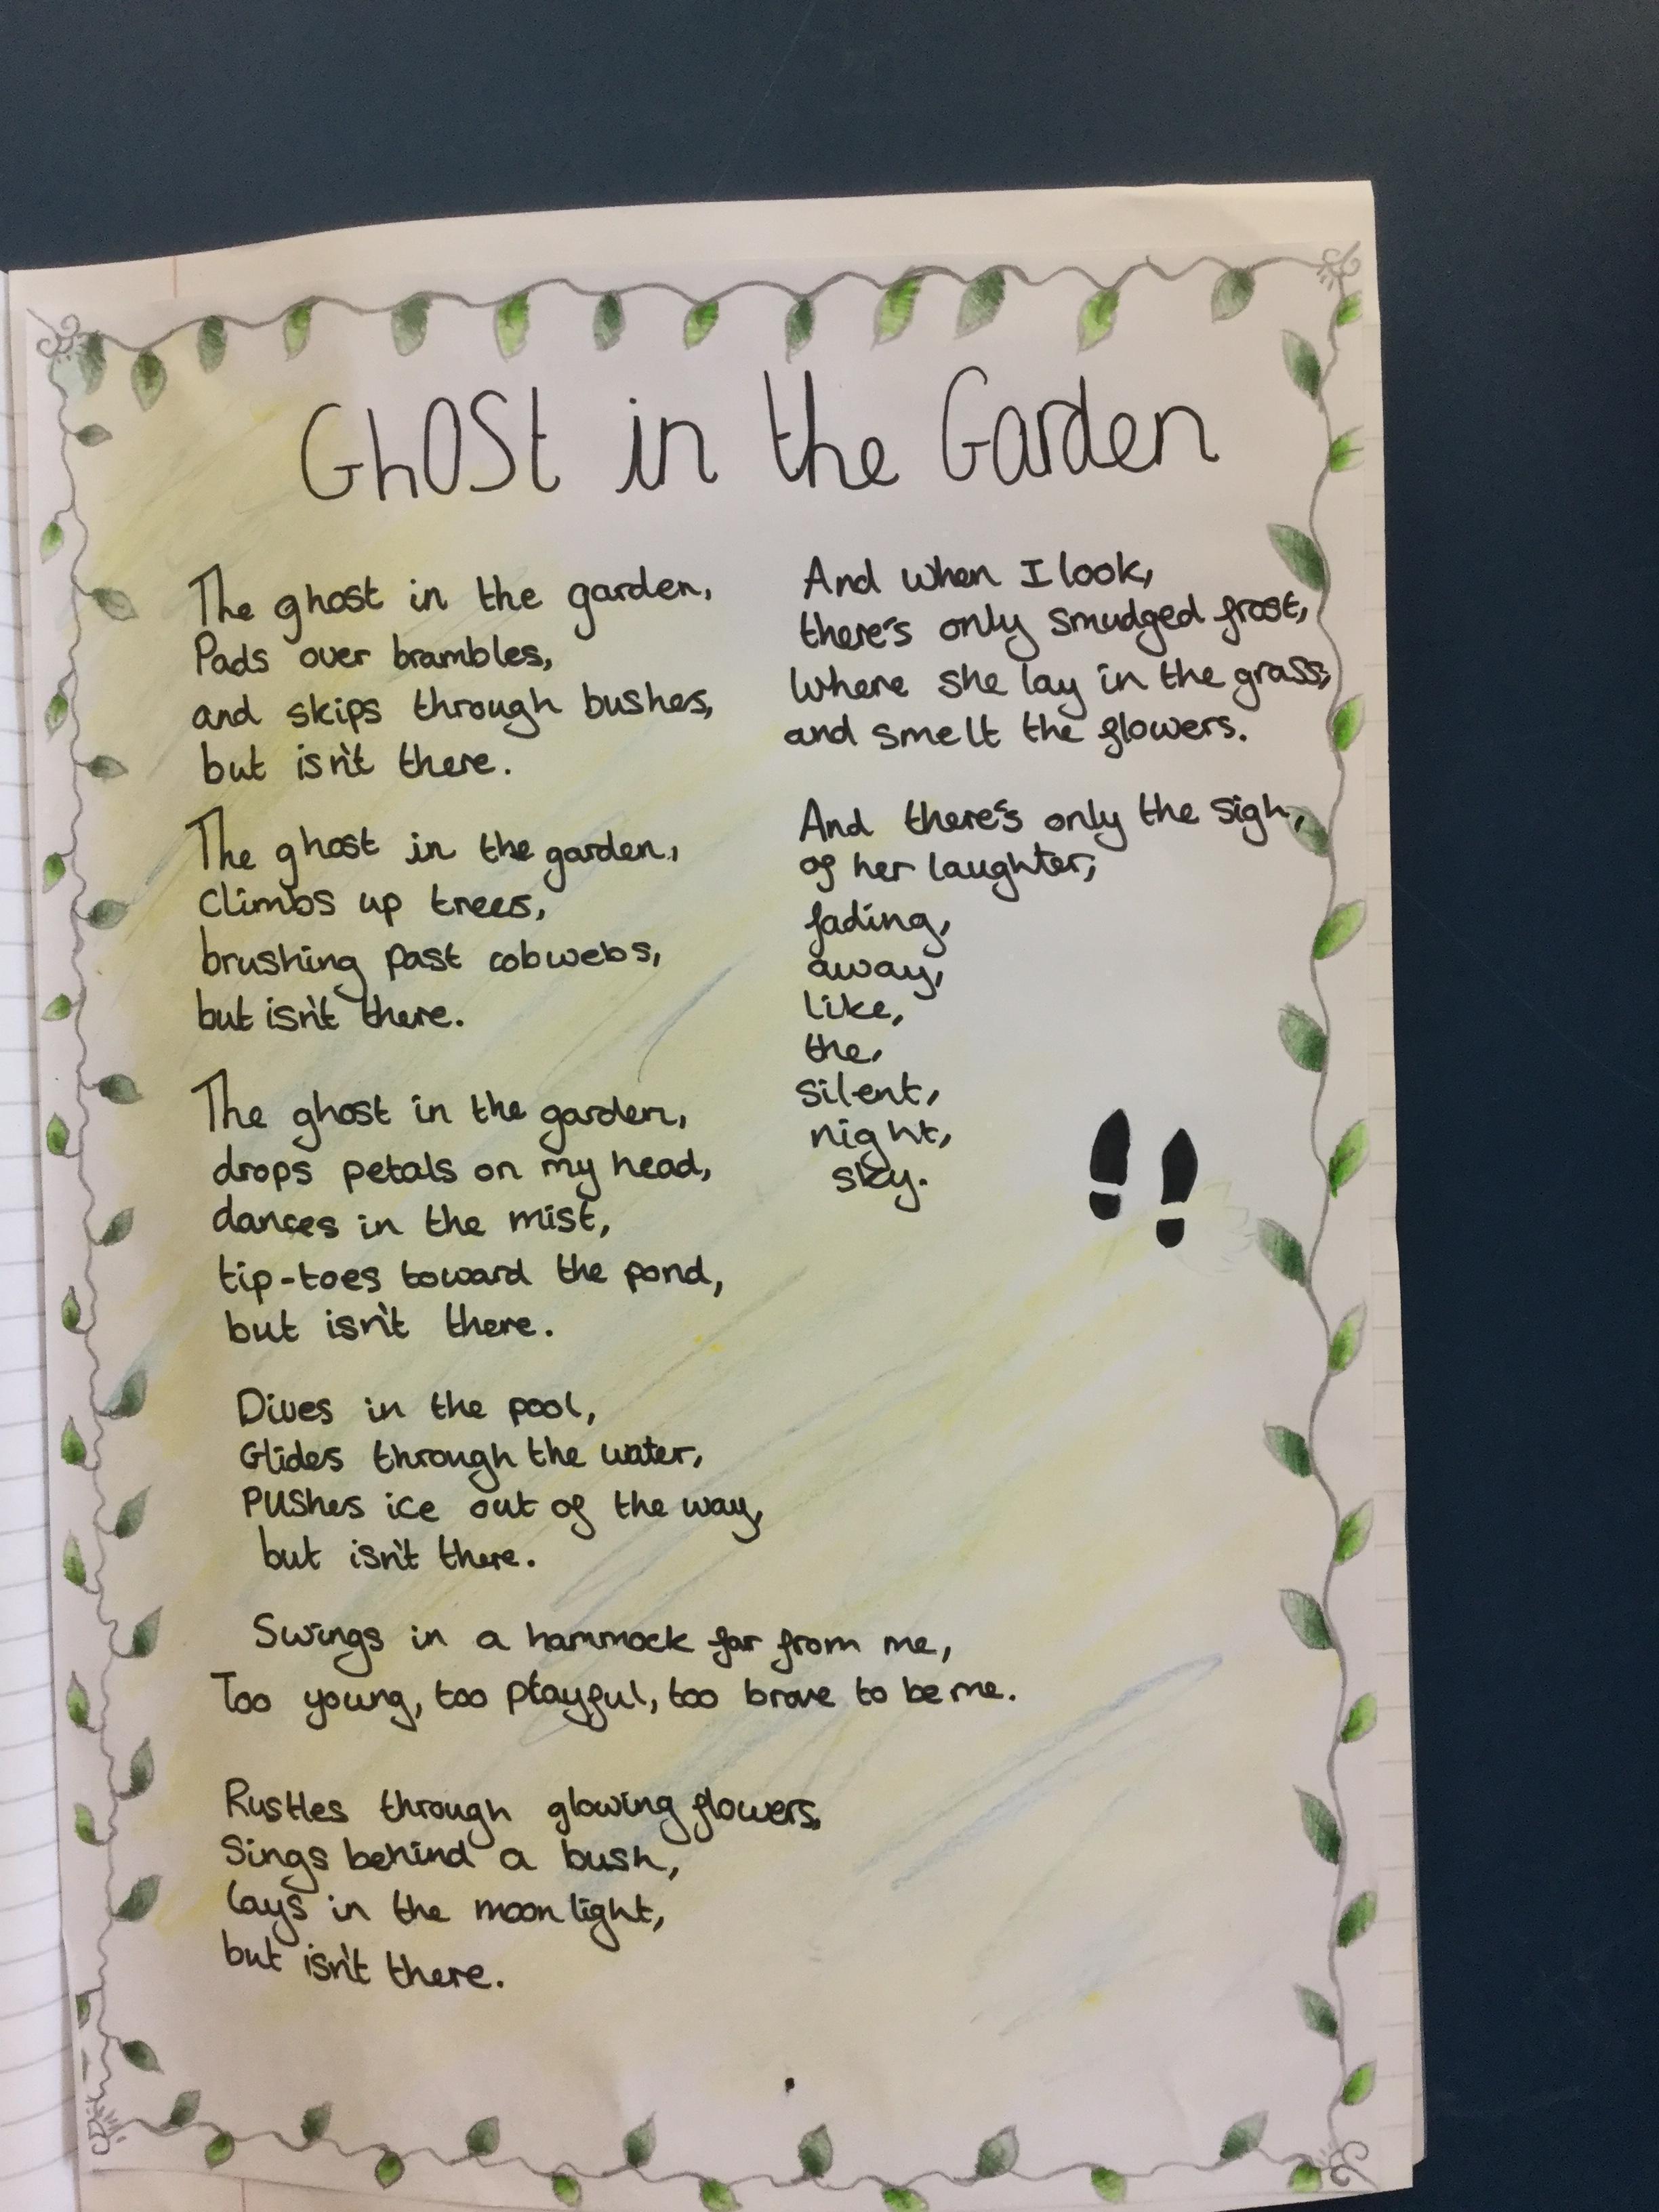 GhOSt in the Garden
The ghost in the garden,
Pads over brambles,
and skips through bushes,
but isn't there.
The ghost in the garden,
Climbs up trees,
brushing past cobwebs,
but isn't there.
The ghost in the garden,
drops petals on my head,
dances in the mist,
tip-toes toward the pond,
but isn't there.
Dives in the pool,
Glides through the water,
PUShes ice out of the way,
but isn't there.
Swings in a hammock far from me,
Too young, too playful, too brave to be me.
Rustles through glowing flowers,
Sings behind a bush,
lays in the moonlight,
but isn't there.
And when I look,
there's only smudged frost,
Where she lay in the grass,
and smelt the flowers.
And there's only the sigh,
of her laughter,
fading,
away,
like,
the,
silent,
night,
sky.